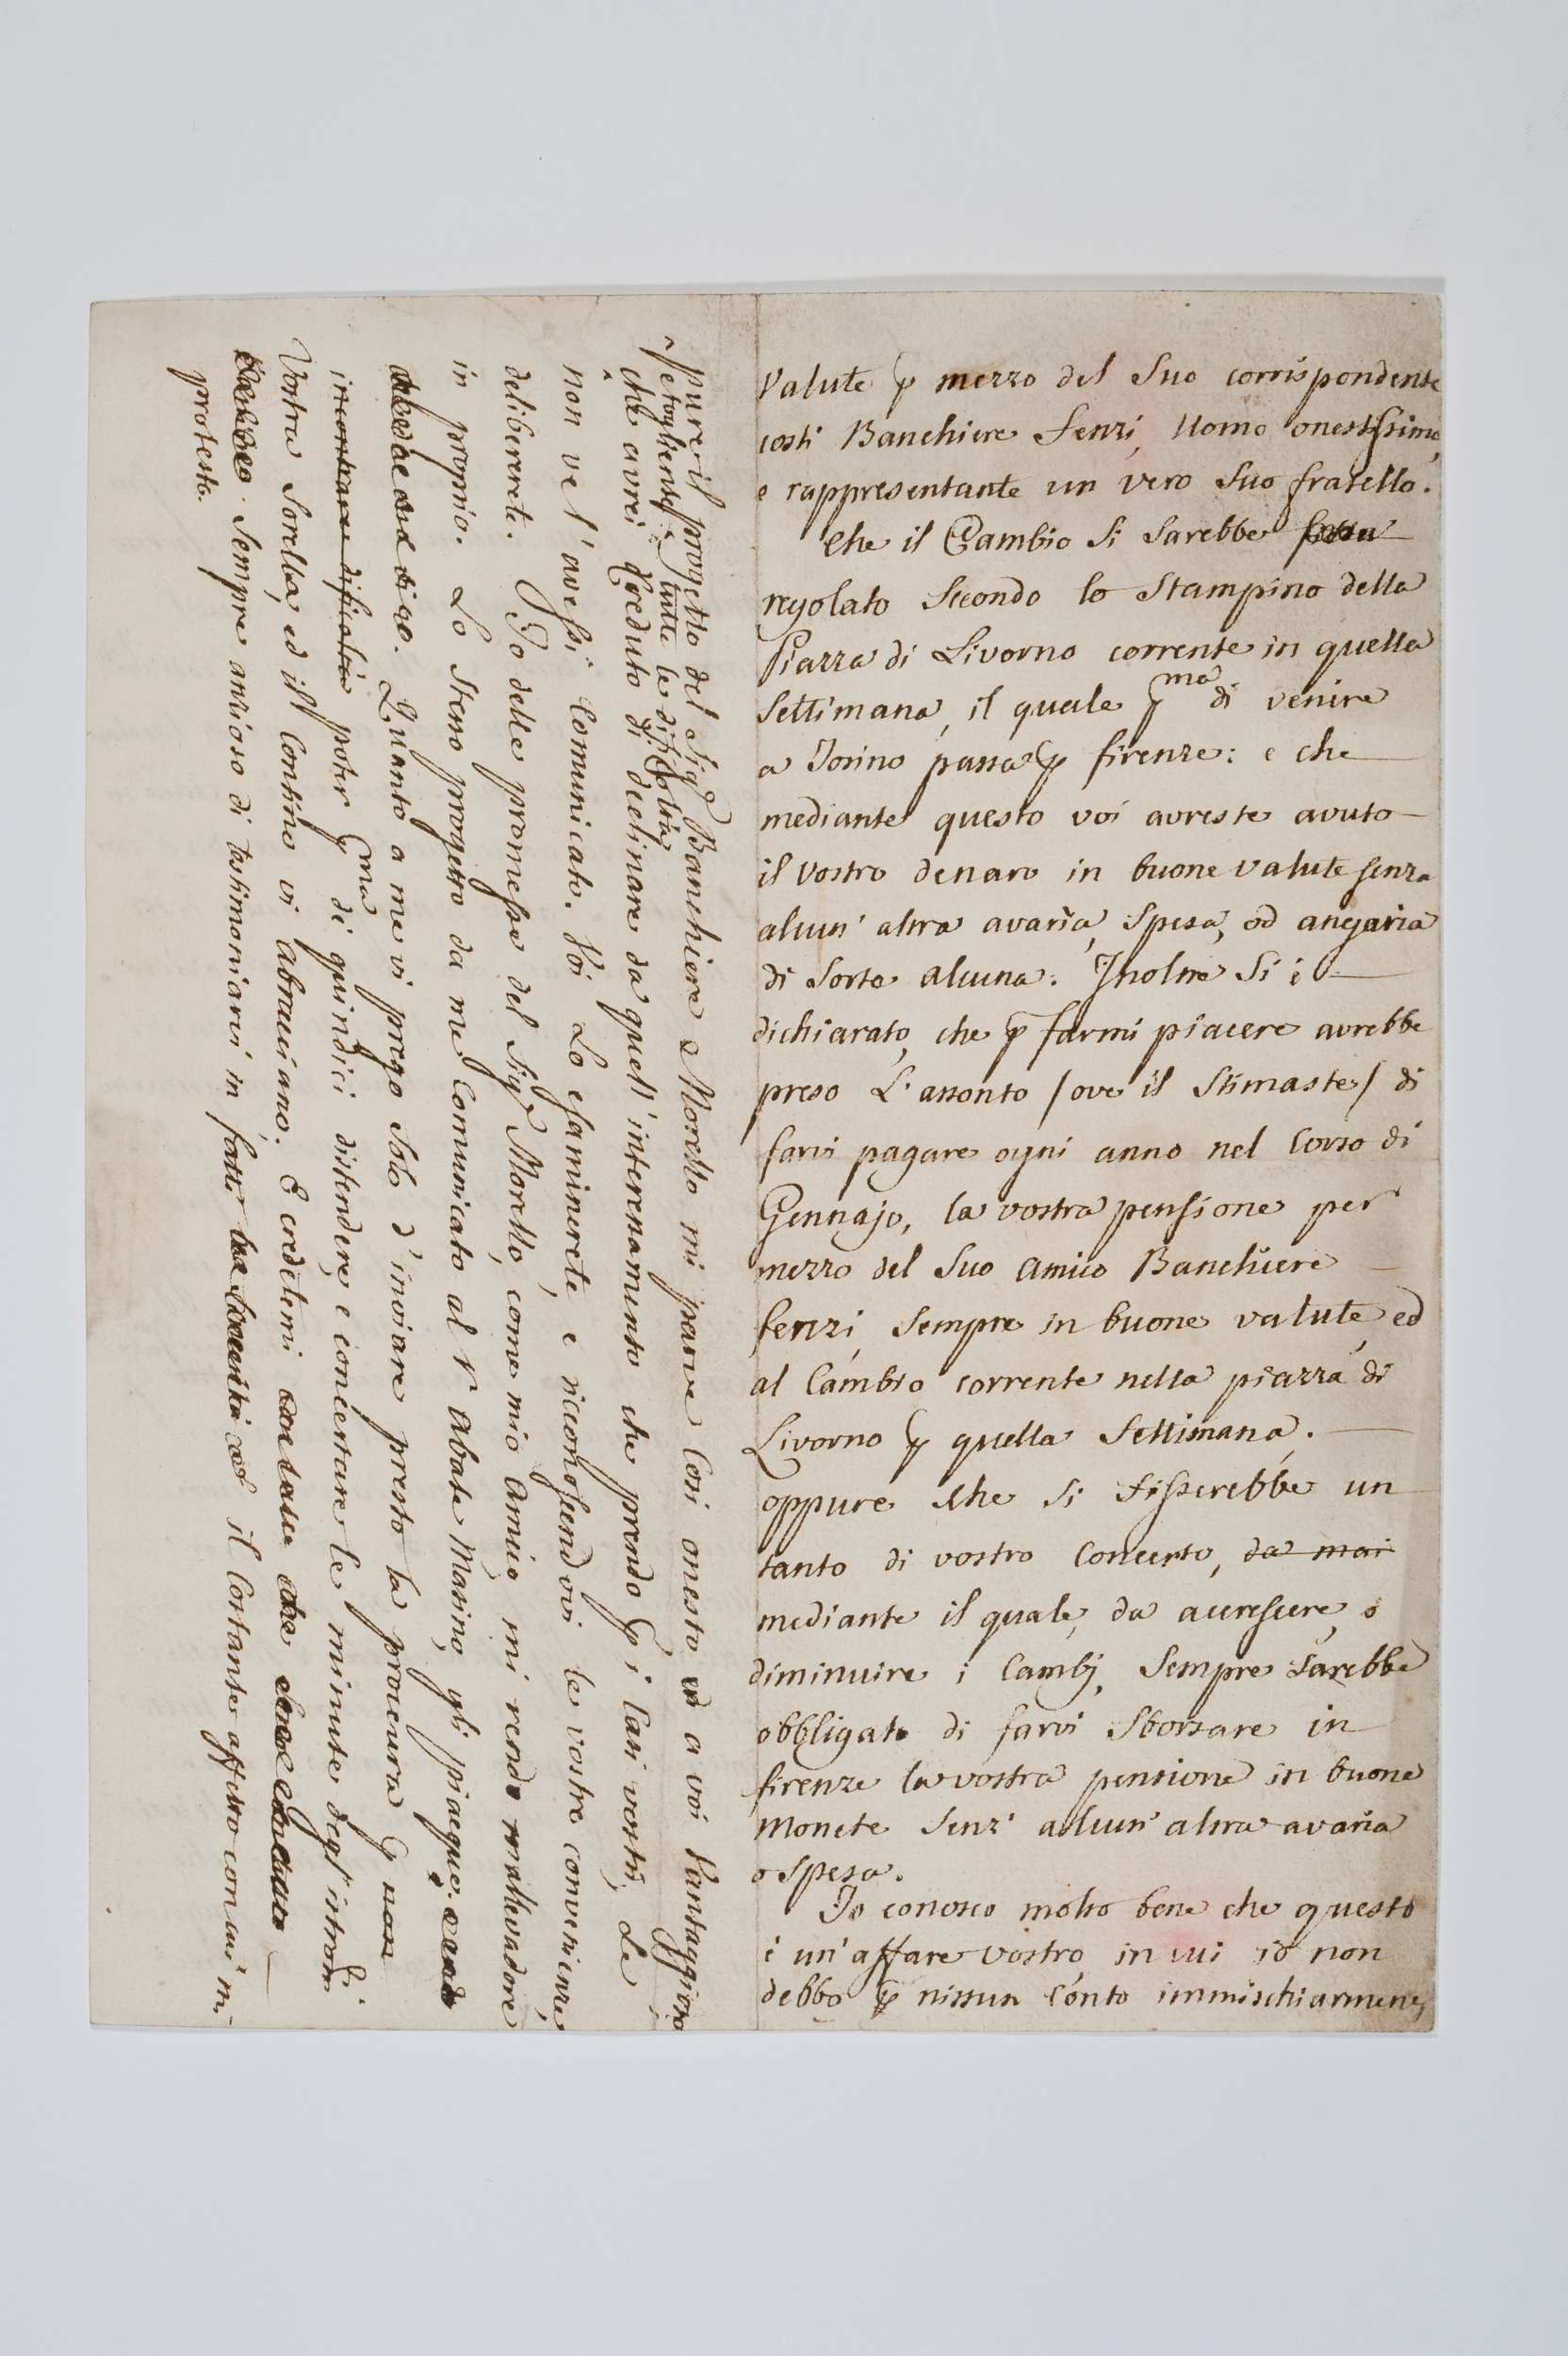 Valute ꝑ mezzo del Suo corrispondente
costì Banchiere Fenzi, Uomo onestissimo,
e rappresentante un vero Suo fratello.
Che il Cambio Si Sarebbe
regolato Secondo lo Stampino della
Piazza di Livorno corrente in quella
Settimana, il quale ꝑma di venire
a Torino passa ꝑ firenze: e che
mediante questo voi avreste avuto
il Vostro denaro in buone valute senza
alcun' altra avaria, Spesa, od angaria
di Sorta alcuna. Inoltre Si è
dichiarato, che ꝑ farmi piacere avrebbe
preso L'assonto /ove il Stimaste/ di
farvi pagare ogni anno nel Corso di
Gennajo, la vostra pensione per
mezzo del Suo Amico Banchiere
fenzi, Sempre in buone valute, ed
al Cambio corrente nella piazza di
Livorno ꝑ quella Settimana.
oppure che Si fisserebbe un
tanto di vostro Concerto, da mai
mediante il quale, da accrescere, o
diminuire i Cambj, Sempre Sarebbe
obbligato di farvi Sborsare in
firenze la vostra pensione in buone
Monete Senz' alcun' altra avaria
o Spesa.
Io conosco molto bene che questo
è un' affare vostro, in cui io non
debbo ꝑ nissun Conto immischiarmene,
pure il progetto del Sigr Banchiere Morello mi parve Così onesto a voi Vantaggioso
e togliente tutte le difficoltà
che avrei Creduto di declinare da quell' interessamento che prendo ꝑ i Casi vostri, Se
non ve l'avessi Comunicato. Voi Lo esaminerete, e riconoscendovi le vostre convenienze,
delibererete. Io delle promesse del Sigr Morello, come mio Amico mi rendo mallevadore
in proprio. Lo Stesso progetto da me Comunicato al Sr Abate Masino, gli piacque.
Quanto a me vi prego Solo d'inviare presto la procura ꝑ non
incontrare dificoltà poter ꝑma di quindici distendere, e concertare le minute degl' istromi.
Vostra Sorella, ed il Contino vi abracciano. E credetemi
Sempre ansioso di testimoniarvi in fatti il Costante affetto con cui mi
protesto.